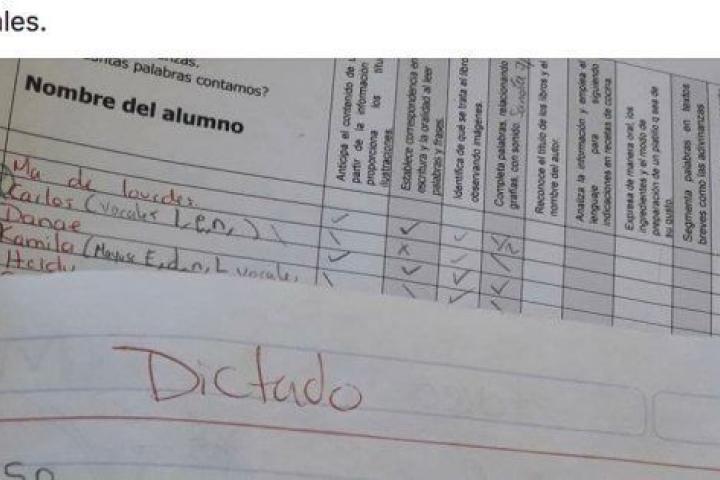 ales.
palabras contamos?
Nombre del alumno
Anticipa el contenido de
partir de la información
proporciona los
ilustraciones.
Establece correspondencia en
escritura y la oralidad al leer
palabras y frases.
Identifica de qué se trata el libro
observando imágenes.
Completa palabras, relacionando
grafías, con sonido.
Reconoce el título de los libros y el
nombre del autor.
Analiza la información y emplea el
lenguaje para siguiendo
indicaciones en recetas de cocina
Expresa de manera oral, los
ingredientes y el modo de
preparación de un platillo q sea de
su gusto.
Segmenta palabras en textos
breves como las adivinanzas
Ma de lourdes
Carlos (vocales L,e,n,)
Danae
Kamila (Mayus E,d,n,L vocales
Heidy
Dictado
so